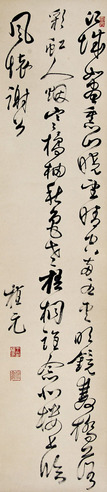 江城如畫裏山曉望晴空兩水夾明鏡雙橋落
彩虹人烟寒橘柚秋色老梧桐誰念北樓上臨
風懷謝公